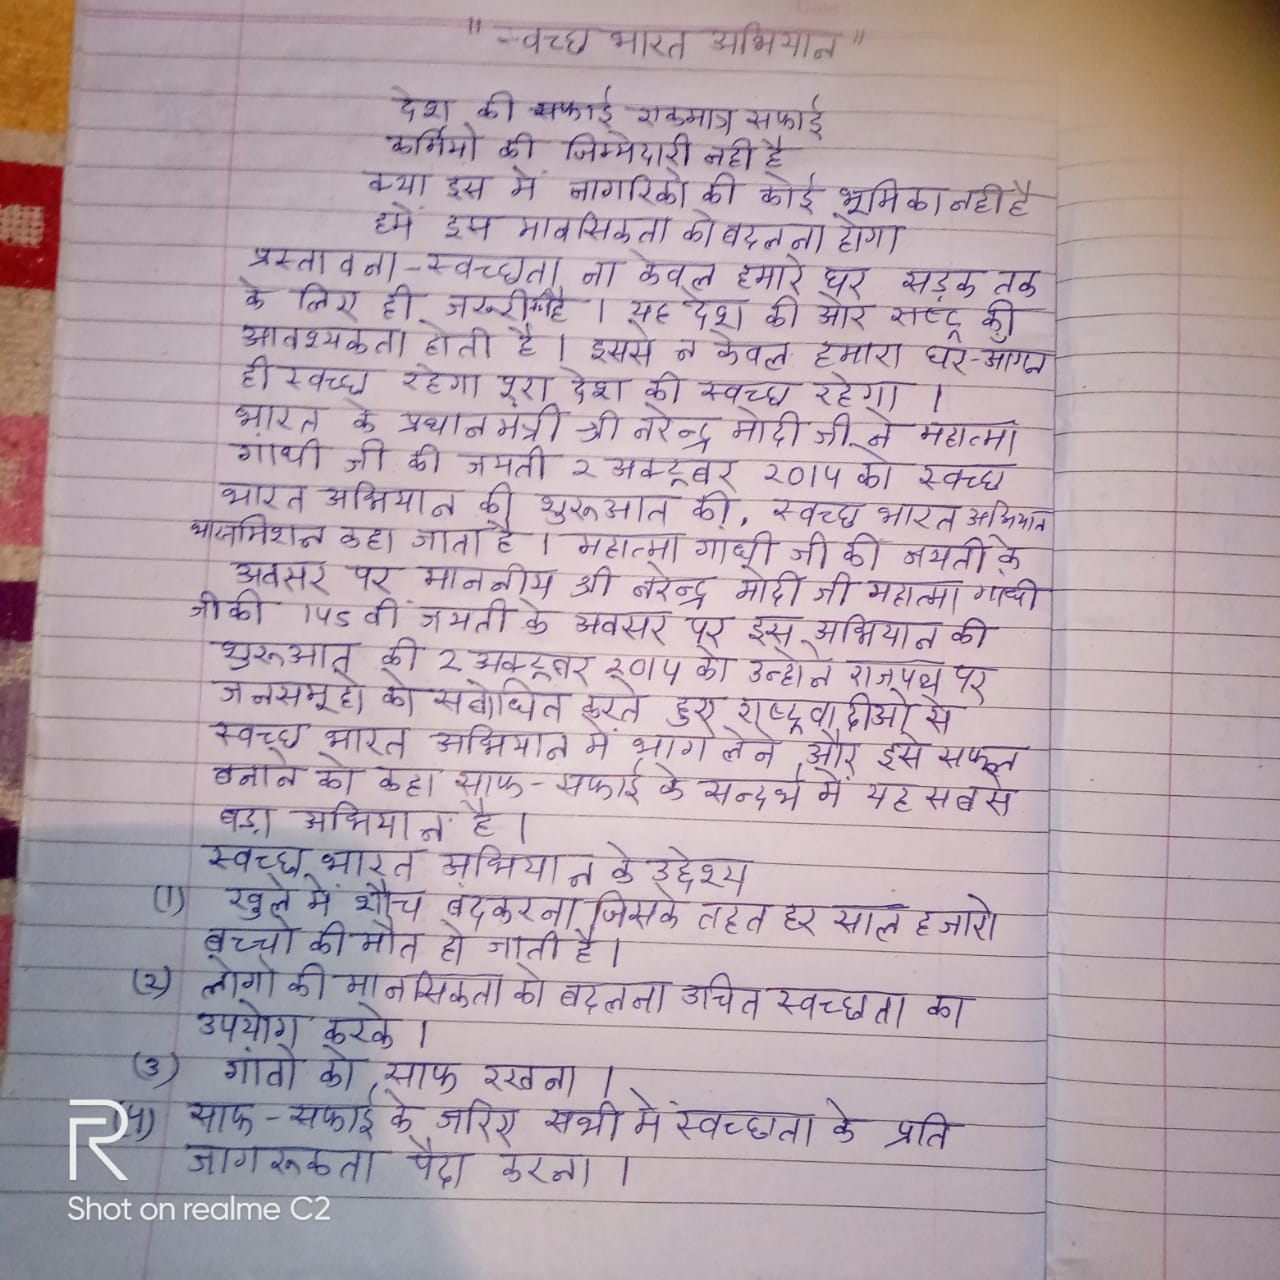 "स्वच्छ भारत अभियान"
देश की सफाई एकमात्र सफाई
कर्मियो की जिम्मेदारी नही है
क्या इस में नागरिको की कोई भूमिका नही है
हमें इस मानसिकता को बदलना होगा
प्रस्तावना - स्वच्छता ना केवल हमारे घर सड़क तक
के लिए ही जरूरी है । यह देश की और राष्ट्र की
आवश्यकता होती है । इससे न केवल हमारा घर-आगन
ही स्वच्छ रहेगा पूरा देश की स्वच्छ रहेगा ।
भारत के प्रधानमंत्री श्री नरेन्द्र मोदी जी ने महात्मा
गांधी जी की जयती २ अक्टूबर २०१५ को स्वच्छ
भारत अभियान की शुरूआत की, स्वच्छ भारत अभियान
मिशन कहा जाता है । महात्मा गाधी जी की जयती के
अवसर पर माननीय श्री नरेन्द्र मोदी जी महात्मा गाधी
जीकी 145 वीं जयती के अवसर पर इस अभियान की
शुरूआत की २ अक्टूबर २०१५ को उन्होने राजपथ पर
जनसमूहो को सबोधित करते हुए राष्ट्रवादीओ से
स्वच्छ भारत अभियान में भाग लेने और इसे सफल
बनाने को कहा साफ-सफाई के सन्दर्भ में यह सबसे
बड़ा अभियान है ।
स्वच्छ भारत अभियान के उद्देश्य
(1) खुले में शौच बंद करना जिसके तहत हर साल हजारो
बच्चो की मौत हो जाती है ।
(२) लोगो की मानसिकता को बदलना उचित स्वच्छता का
उपयोग करके ।
(3) गांवो को साफ रखना ।
(4) साफ-सफाई के जरिए सभी में स्वच्छता के प्रति
जागरूकता पैदा करना ।
R
Shot on realme C2